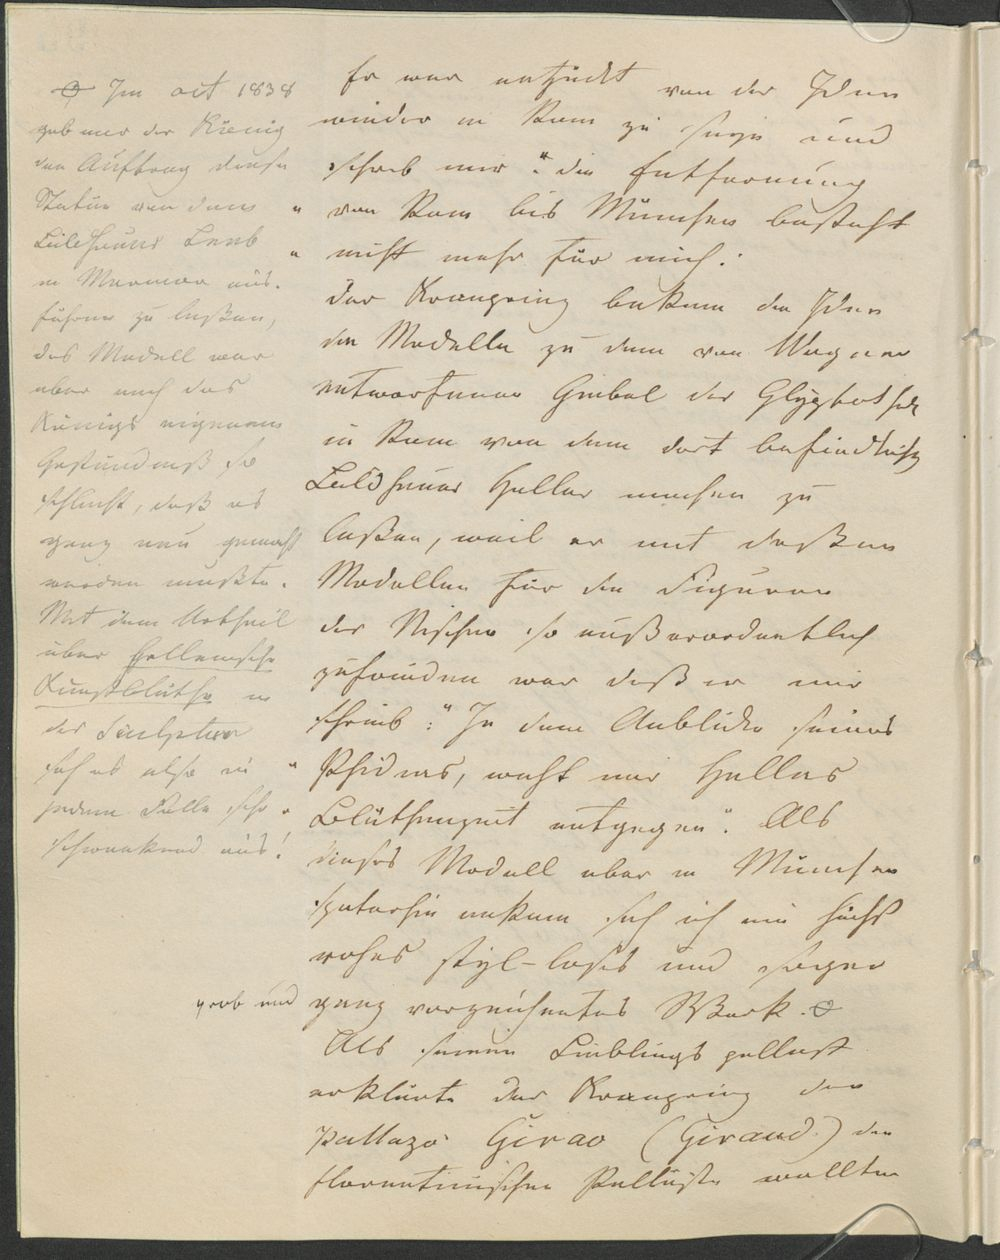 Er war entzückt von der Ideen
wieder in Rom zu seyn und
schrieb mir: "die Entfernung
" von Rom bis München besteht
" nicht mehr für mich."
Der Kronprinz bekam die Ideen
die Modelle zu dem von Wagner
entworfenen Giebel der Glypthothek
in Rom von dem dort befindlichen
Bildhauer Haller machen zu
laßen, weil er mit deßen
Modellen für die Figuren
der Nischen so außerordentlich
zufrieden war daß er mir
schrieb: "In dem Anblicke seines
" Phidias, weht mir Hellas
" Blüthenzeit entgegen". Als
dieses Modell aber in München
spaterhin ankam sah ich ein höchst
rohes styl-loses und sogar
ganz verzeichnetes Werk. ⌀
Als seinen Lieblings pallast
erklärte der Kronprinz den
Pallazo Girao (Giraud.) die
florentinischen Palläste wollten
⌀ Im oct 1838
gab mir der König
den Auftrag diese
Statue von dem
Bildhauer Leeb
in Marmor aus-
führen zu laßen,
das Modell war
aber nach des
Königs eigenem
Geständniß so
schlecht, daß es
ganz neu gemacht
werden mußte.
Mit dem Urtheil
über Hellenische
Kunstblüthe in
der Sculptur
sah es also in
jedem Falle sehr
schwankend aus!
grob und